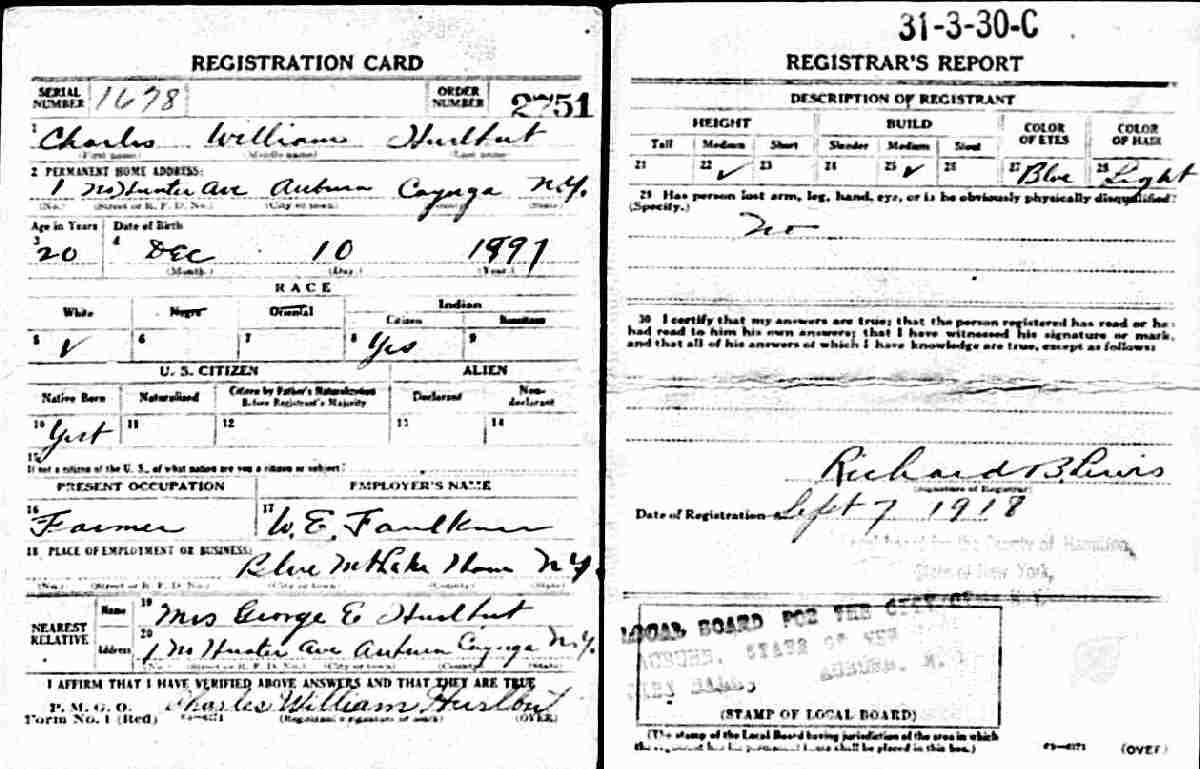 REGISTRATION CARD
SERIAL NUMBER 1678 ORDER NUMBER 2751
1 Charles William Hurlbut
(First name) (Middle name) (Last name)
2 PERMANENT HOME ADDRESS:
1 No Hunter Ave Auburn Cayuga N.Y.
(No.) (Street or R. F. D. No.) (City or town) (County) (State)
Age in Years Date of Birth
3 20 4 Dec 10 1897
(Month.) (Day.) (Year.)
RACE
White Negro Oriental Indian
Citizen Noncitizen
5 ✓ 6 7 8 Yes 9
U. S. CITIZEN ALIEN
Native Born Naturalized Citizen by Father's Naturalization Before Registrant's Majority Declarant Non-declarant
10 Yes 11 12 13 14
15
If not a citizen of the U. S., of what nation are you a citizen or subject?
PRESENT OCCUPATION EMPLOYER'S NAME
16 Farmer 17 W. E. Faulkner
18 PLACE OF EMPLOYMENT OR BUSINESS:
Blue Mt Lake N.Y.
(No.) (Street or R. F. D. No.) (City or town) (County) (State)
NEAREST RELATIVE Name 19 Mrs George E Hurlbut
Address 20 1 No Hunter Ave Auburn Cayuga N.Y.
(No.) (Street or R. F. D. No.) (City or town) (County) (State)
I AFFIRM THAT I HAVE VERIFIED ABOVE ANSWERS AND THAT THEY ARE TRUE
P. M. G. O.
Form No. 1 (Red) Charles William Hurlbut
(Registrant's signature or mark) (OVER)
31-3-30-C
REGISTRAR'S REPORT
DESCRIPTION OF REGISTRANT
HEIGHT BUILD COLOR OF EYES COLOR OF HAIR
Tall Medium Short Slender Medium Stout
21 22 ✓ 23 24 25 ✓ 26 27 Blue 28 Light
29 Has person lost arm, leg, hand, eye, or is he obviously physically disqualified?
(Specify.) No
30 I certify that my answers are true; that the person registered has read or has
had read to him his own answers; that I have witnessed his signature or mark,
and that all of his answers of which I have knowledge are true, except as follows:
Richard B Lewis
(Signature of Registrar)
Date of Registration Sept 7 1918
Local Board for the County of Hamilton,
State of New York,
LOCAL BOARD FOR THE CITY OF
AUBURN, STATE OF NEW
CITY HALL, AUBURN, N.Y.
(STAMP OF LOCAL BOARD)
(The stamp of the Local Board having jurisdiction of the area in which
the registrant has his permanent home shall be placed in this box.)
(OVER)